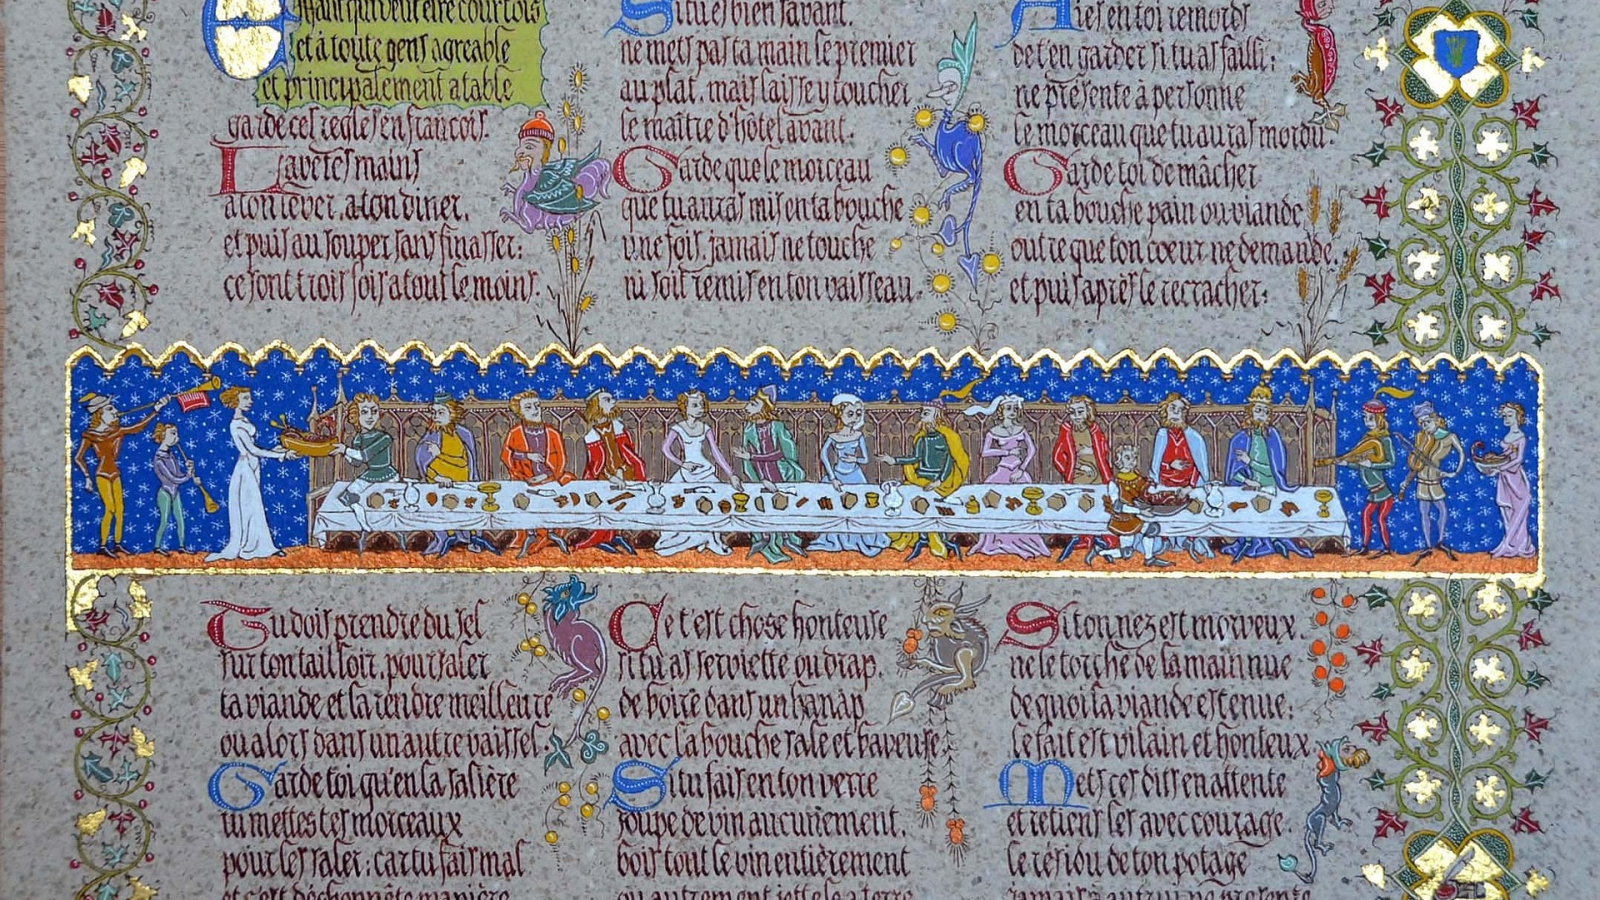 Enfant qui veut être courtois
et à toute gens agréable
et principalement a table
garde ces règles en françois.
Lave tes mains
a ton lever, a ton diner,
et puis au souper sans finasser:
ce sont trois fois a tout le moins.
Tu dois prendre du sel
sur ton tailloir, pour saler
ta viande et la rendre meilleure
ou alors dans un autre vaissel.
Garde toi qu'en la salière
tu mettes tes morceaux
pour les saler: car tu fais mal
et c'est déshonnête manière
Si tu es bien savant.
ne mets pas ta main le premier
au plat. mais laisse y toucher
le maître d'hôtel avant.
Garde que le morceau
que tu auras mis en ta bouche
une fois, jamais ne touche
ni soit remis en ton vaisseau.
Ce t'est chose honteuse
si tu as serviette ou drap,
de boire dans un hanap
avec la bouche sale et baveuse.
Si tu fais en ton verre
soupe de vin aucunement,
bois tout le vin entièrement
ou autrement jette le a terre
Aies en toi remords
de t'en garder si tu as failli:
ne présente à personne
le morceau que tu auras mordu.
Garde toi de mâcher
en ta bouche pain ou viande,
outre que ton coeur ne demande,
et puis après le recracher:
Si ton nez est morveux,
ne le torche de la main nue
de quoi ta viande est tenue:
le fait est vilain et honteux
Mets ces dits en attente
et retiens les avec courage.
le résidu de ton potage
jamais à autrui ne présente